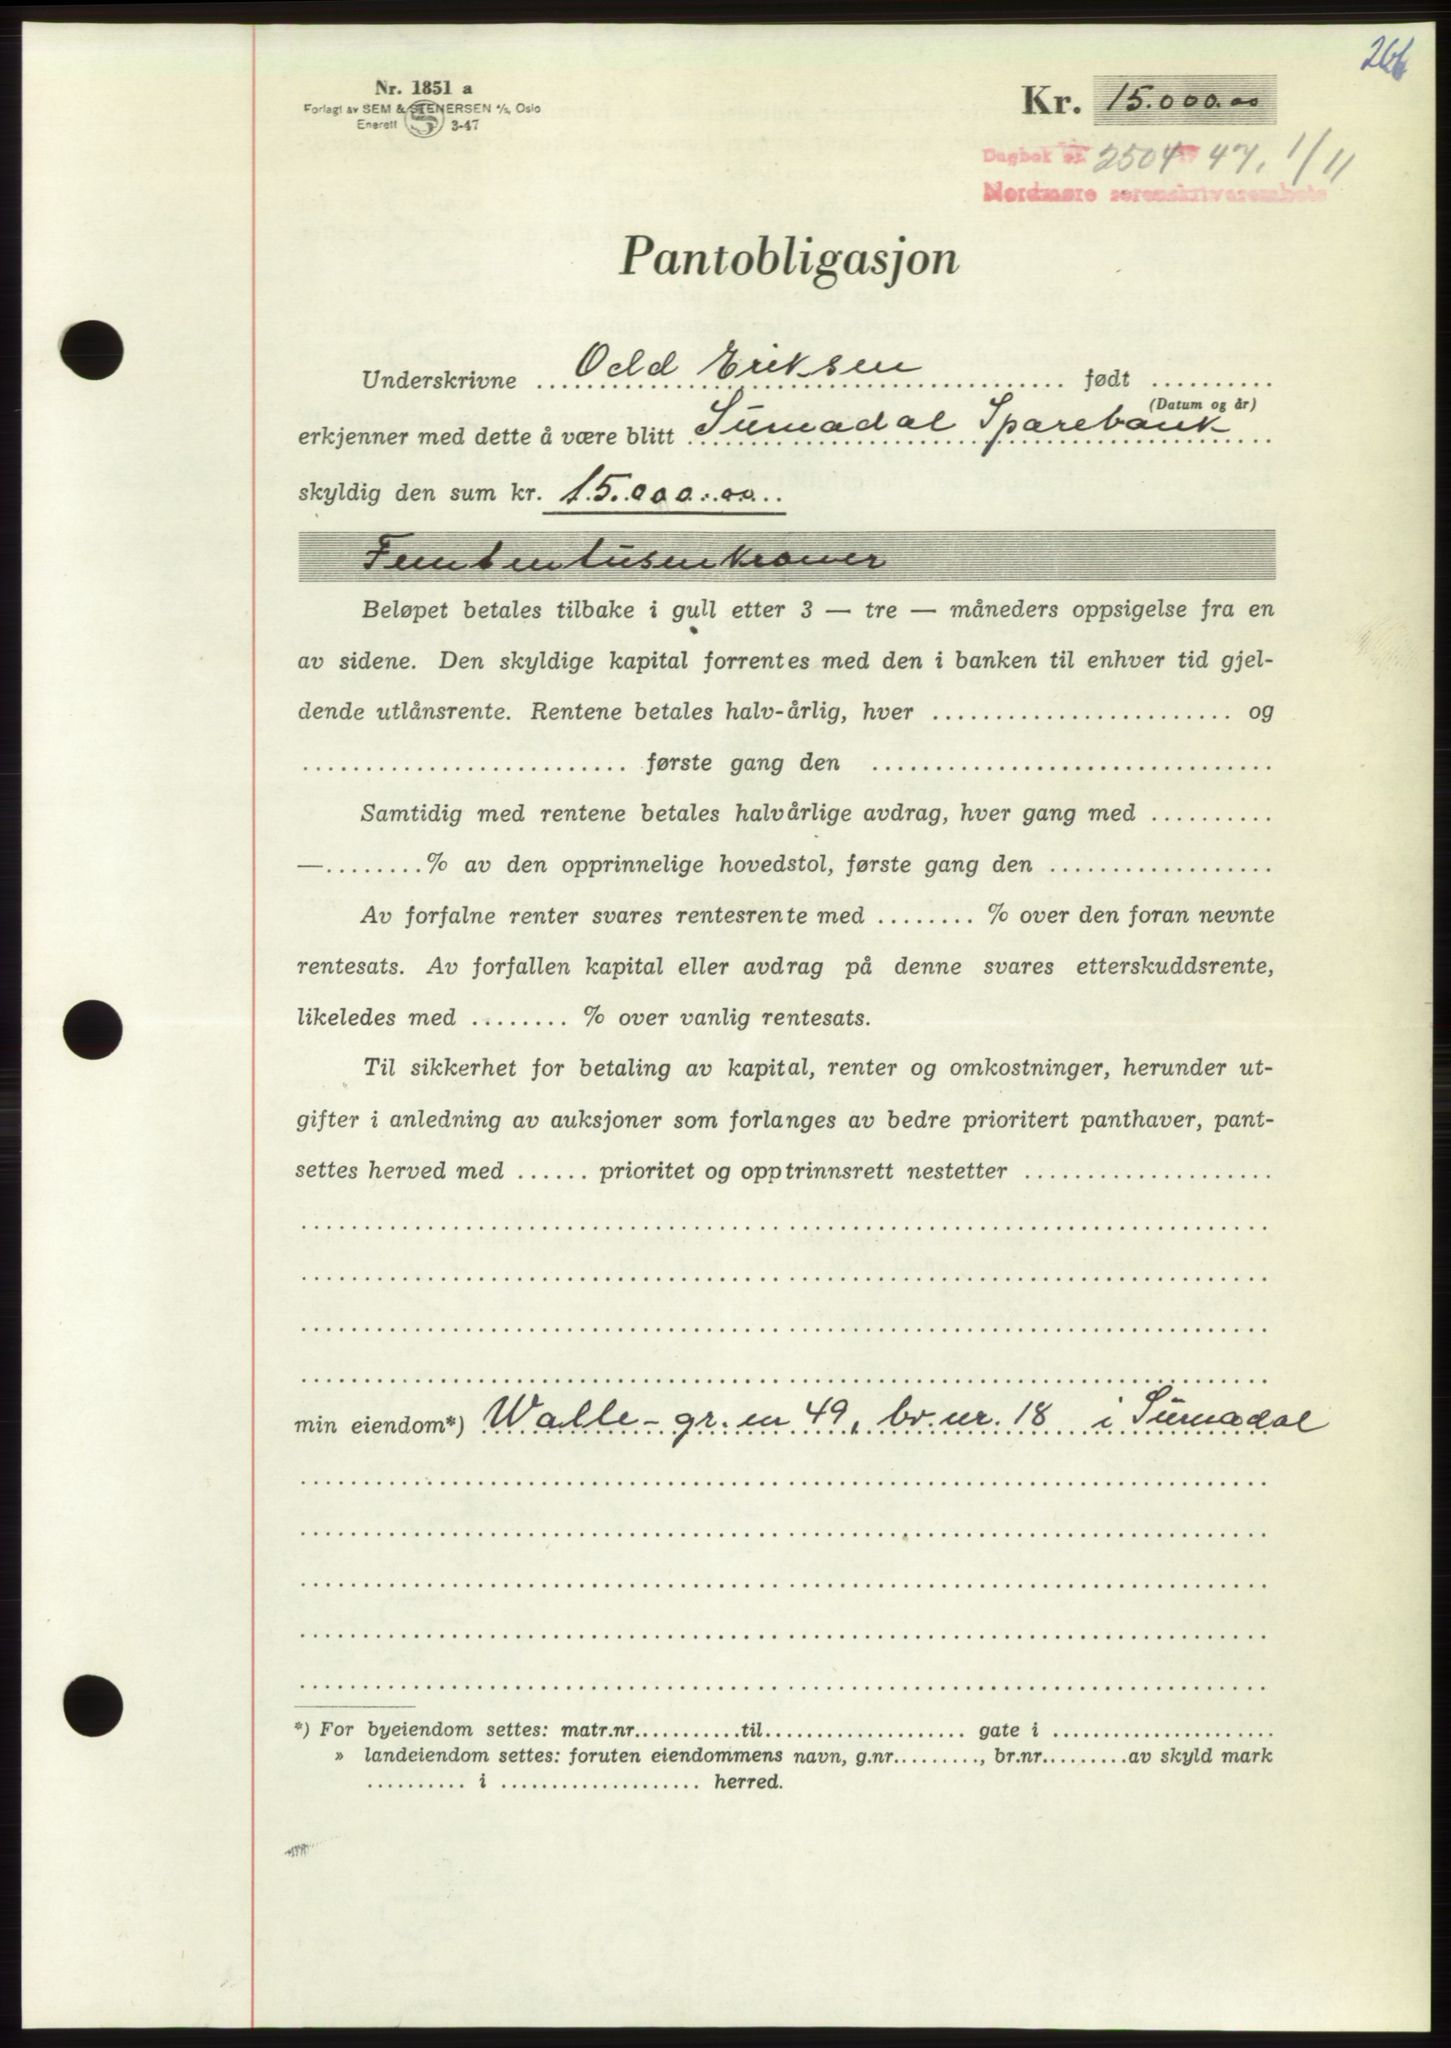 266
Nr. 1851 a
Forlagt av SEM & STENERSEN A/S, Oslo
Enerett S 3-47
Kr. 15.000.00
Dagbok nr. 2504 47. 1/11
Nordmøre sorenskriverembete
Pantobligasjon
Underskrivne Odd Eriksen født ..........
(Datum og år)
erkjenner med dette å være blitt Surnadal Sparebank
skyldig den sum kr. 15.000.00
Femten tusen kroner
Beløpet betales tilbake i gull etter 3 — tre — måneders oppsigelse fra en
av sidene. Den skyldige kapital forrentes med den i banken til enhver tid gjel-
dende utlånsrente. Rentene betales halv-årlig, hver ........................ og
.......................... første gang den ................................
Samtidig med rentene betales halvårlige avdrag, hver gang med ..........
—........% av den opprinnelige hovedstol, første gang den ..................
Av forfalne renter svares rentesrente med ........ % over den foran nevnte
rentesats. Av forfallen kapital eller avdrag på denne svares etterskuddsrente,
likeledes med ........ % over vanlig rentesats.
Til sikkerhet for betaling av kapital, renter og omkostninger, herunder ut-
gifter i anledning av auksjoner som forlanges av bedre prioritert panthaver, pant-
settes herved med ...... prioritet og opptrinnsrett nestetter ....................
min eiendom*) Walle - gr. nr 49, br. nr. 18 i Surnadal
*) For byeiendom settes: matr.nr...........til.................... gate i ......................
» landeiendom settes: foruten eiendommens navn, g.nr........., br.nr.........av skyld mark
.......... i .................... herred.